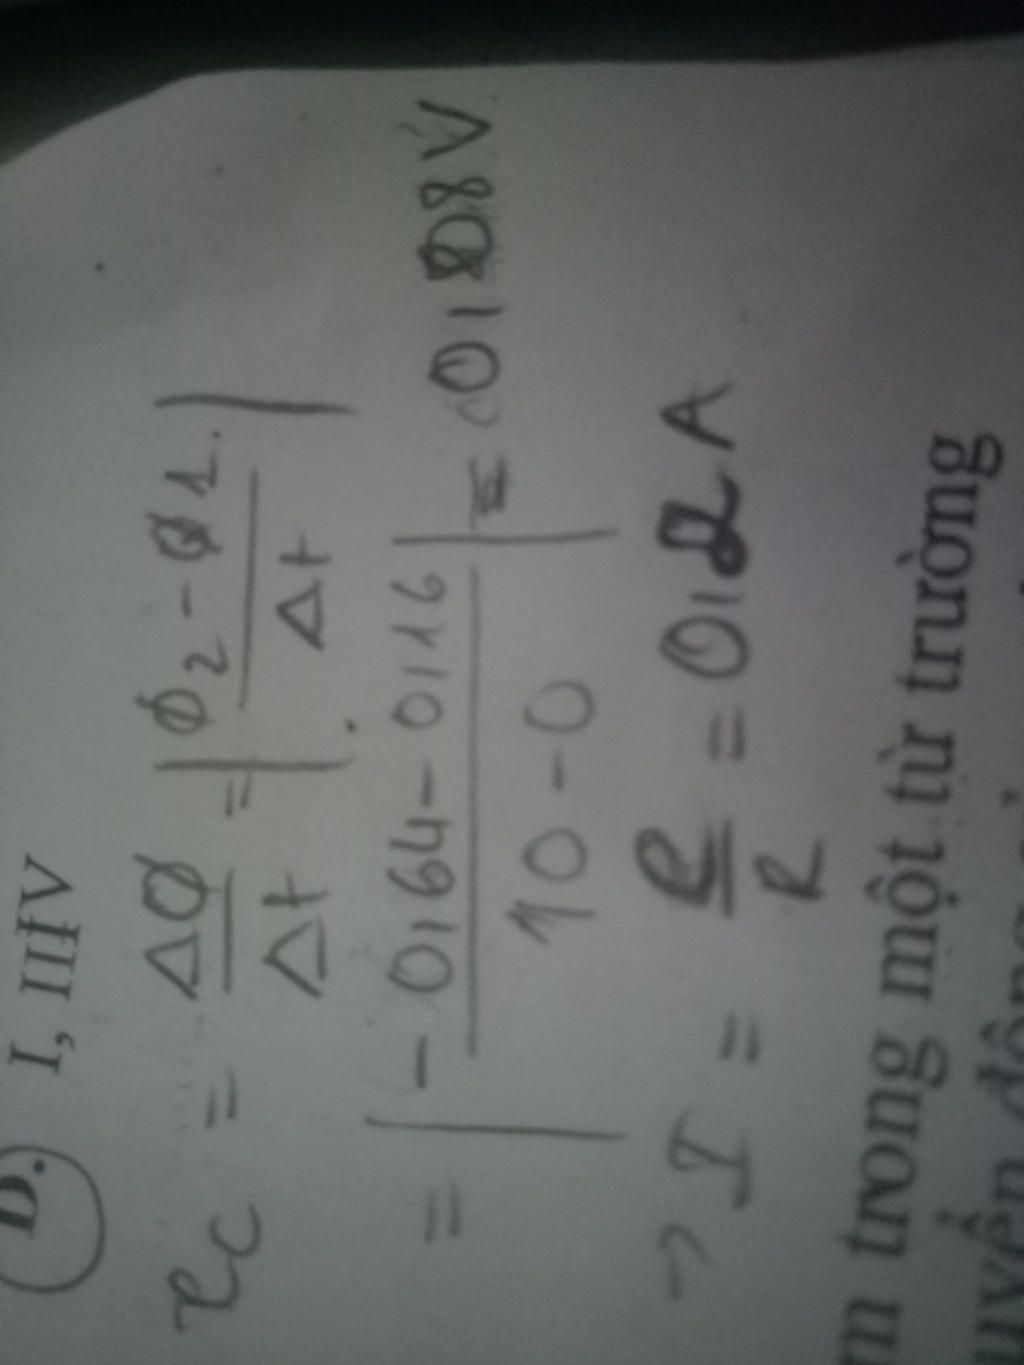 D. I, III, IV
ec = ΔΦ/Δt = |Φ2 - Φ1/Δt|
= |-0,64 - 0,16/10 - 0| = 0,08V
→ I = e/R = 0,2A
trong một từ trường